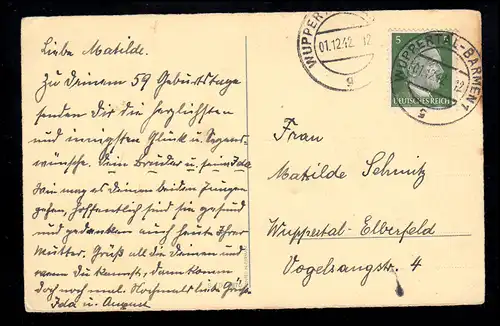 Liebe Matilde.
Zu Deinem 59 Geburtstage
senden Dir die herzlichsten
und innigsten Glück u. Segens-
wünsche. Dein Bruder u. seine Ida.
Wie mag es Deinen beiden Jungen
gehen, hoffentlich sind sie gesund
und gedenken auch heute Ihrer
Mutter. Grüß all die Deinen und
wenn Du kannst, dann komm
doch noch mal. Nochmals liebe Grüße
Ida u. August
WUPPERTAL
01.12.42. 12
g
5
DEUTSCHES REICH
WUPPERTAL-BARMEN 1
12
g
Frau
Matilde Schmitz
Wuppertal-Elberfeld
Vogelsangstr. 4